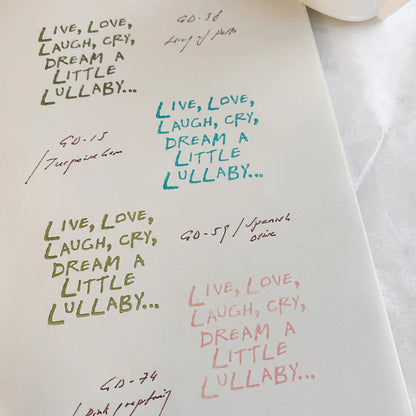 LIVE, LOVE,
LAUGH, CRY,
DREAM A
LITTLE
LULLABY...
GD-38
GD-15
/Turquoise Gem
LIVE, LOVE,
LAUGH, CRY,
DREAM A
LITTLE
LULLABY...
LIVE, LOVE,
LAUGH, CRY,
DREAM A
LITTLE
LULLABY...
GD-59/Spanish
olive
LIVE, LOVE,
LAUGH, CRY,
DREAM A
LITTLE
LULLABY...
GD-74
/Pink